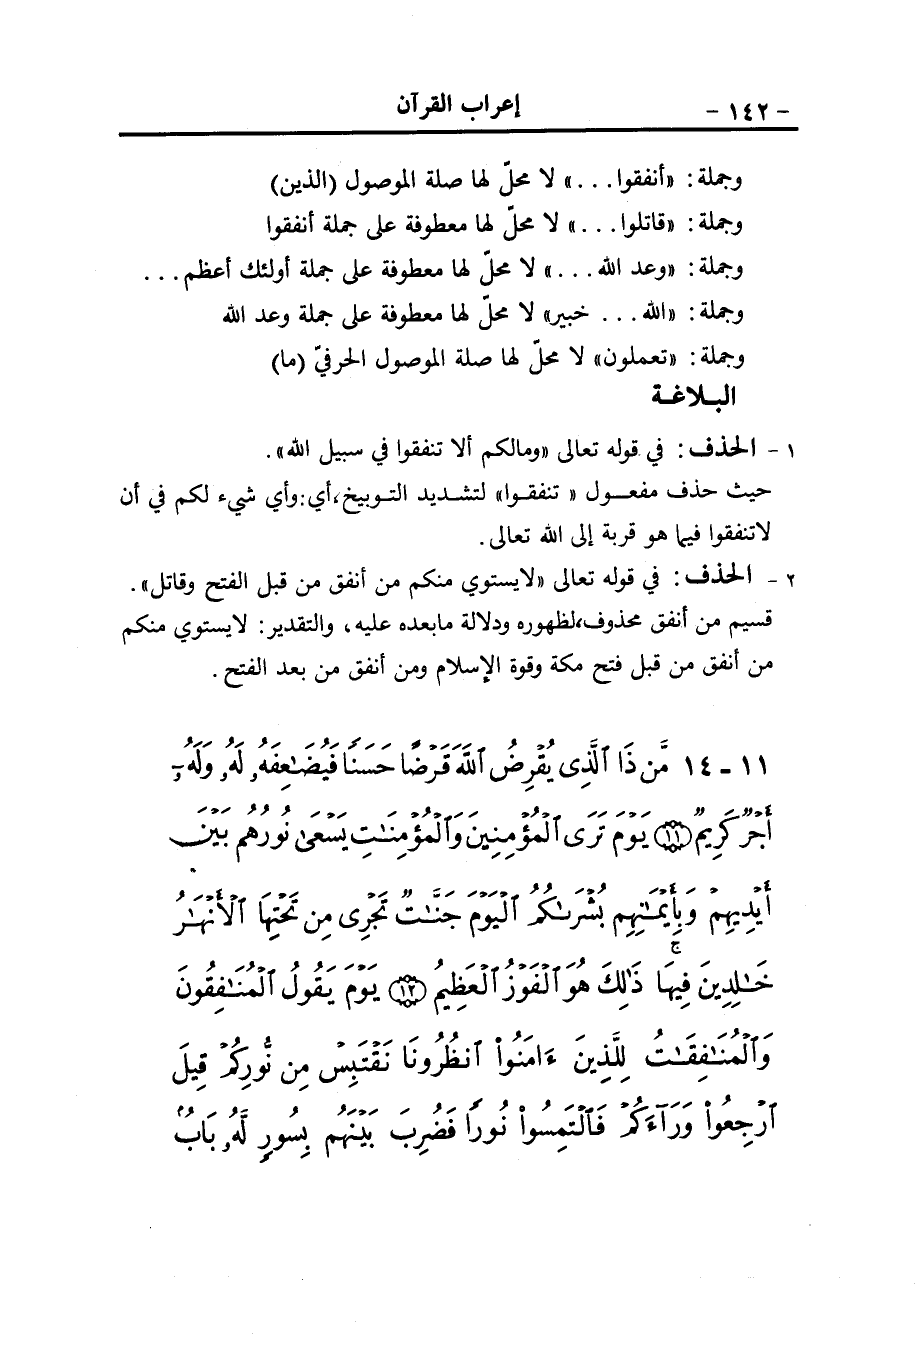 - ١٤٢ - إعراب القرآن
وجملة: «أنفقوا...» لا محلّ لها صلة الموصول (الذين)
وجملة: «قاتلوا...» لا محلّ لها معطوفة على جملة أنفقوا
وجملة: «وعد الله...» لا محلّ لها معطوفة على جملة أولئك أعظم...
وجملة: «الله... خبير» لا محلّ لها معطوفة على جملة وعد الله
وجملة: «تعملون» لا محلّ لها صلة الموصول الحرفيّ (ما)
البلاغة
١ - الحذف: في قوله تعالى «ومالكم ألا تنفقوا في سبيل الله».
حيث حذف مفعول « تنفقوا» لتشديد التوبيخ،أي:وأي شيء لكم في أن
لاتنفقوا فيما هو قربة إلى الله تعالى.
٢ - الحذف: في قوله تعالى «لايستوي منكم من أنفق من قبل الفتح وقاتل».
قسيم من أنفق محذوف،لظهوره ودلالة مابعده عليه، والتقدير: لايستوي منكم
من أنفق من قبل فتح مكة وقوة الإسلام ومن أنفق من بعد الفتح.
١١ - ١٤ مَّن ذَا ٱلَّذِى يُقْرِضُ ٱللَّهَ قَرْضًا حَسَنًا فَيُضَٰعِفَهُۥ لَهُۥ وَلَهُۥٓ
أَجْرٌ كَرِيمٌ ﴿١١﴾ يَوْمَ تَرَى ٱلْمُؤْمِنِينَ وَٱلْمُؤْمِنَٰتِ يَسْعَىٰ نُورُهُم بَيْنَ
أَيْدِيهِمْ وَبِأَيْمَٰنِهِم بُشْرَىٰكُمُ ٱلْيَوْمَ جَنَّٰتٌ تَجْرِى مِن تَحْتِهَا ٱلْأَنْهَٰرُ
خَٰلِدِينَ فِيهَا ۚ ذَٰلِكَ هُوَ ٱلْفَوْزُ ٱلْعَظِيمُ ﴿١٢﴾ يَوْمَ يَقُولُ ٱلْمُنَٰفِقُونَ
وَٱلْمُنَٰفِقَٰتُ لِلَّذِينَ ءَامَنُوا۟ ٱنظُرُونَا نَقْتَبِسْ مِن نُّورِكُمْ قِيلَ
ٱرْجِعُوا۟ وَرَآءَكُمْ فَٱلْتَمِسُوا۟ نُورًا فَضُرِبَ بَيْنَهُم بِسُورٍ لَّهُۥ بَابٌۢ